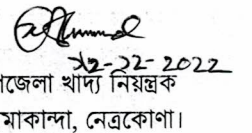 ১২-১২-২০২২
জেলা খাদ্য নিয়ন্ত্রক
মাকান্দা, নেত্রকোণা।